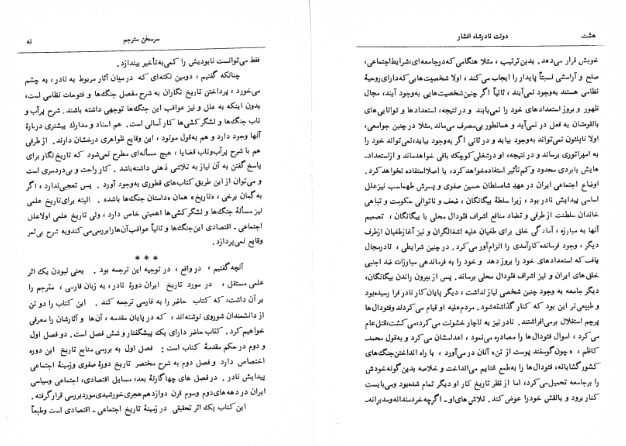 هشت
دولت نادرشاه افشار
خویش قرار می‌دهد. بدین‌ترتیب، مثلا هنگامی که درجامعه‌ای، شرایط اجتماعی،
صلح و آرامش نسبتاً پایدار را ایجاب می‌کند، اولا شخصیت‌هایی که دارای روحیهٔ
نظامی هستند به‌وجود نمی‌آیند، ثانیاً اگر چنین شخصیت‌هایی به‌وجود آیند، مجال
ظهور و بروز استعدادهای خود را نمی‌یابند و درنتیجه، استعدادها و توانایی‌های
بالقوه‌شان به فعل در نمی‌آید و همانطور بی‌مصرف می‌ماند. مثلا در چنین جوامعی،
اولا ناپلئون نمی‌تواند به‌وجود بیاید و در ثانی اگر به‌وجود بیاید، نمی‌تواند خود را
به امپراتوری برساند و درنتیجه، او درشغلی کوچک باقی خواهدماند و ازاستعداد-
هایش یا بردی محدود و کم تأثیر استفاده خواهد کرد، یا اصلا استفاده نخواهد کرد.
اوضاع اجتماعی ایران در عهد شاه‌سلطان حسین صفوی و پسرش طهماسب نیز علل
اساسی پیدایش نادر بود، زیرا سلطهٔ بیگانگان، ضعف و ناتوانی حکومت و تباهی
خاندان سلطنت از طرفی و تضاد منافع اشراف فئودال محلی با بیگانگان، تصمیم
آنها به مبارزه، آمادگی خلق برای طغیان علیه اشغالگران و نیز آغاز طغیان ازطرف
دیگر، وجود فرمانده کارآمدی را الزام‌آور می‌کرد. در چنین شرایطی، نادر مجال
یافت که استعدادهای خود را بروز دهد و خود را به فرماندهی مبارزات ضد اجنبی
خلق‌های ایران و نیز اشراف فئودال محلی برساند. پس از بیرون راندن بیگانگان،
دیگر جامعه به وجود چنین شخصی نیاز نداشت، دیگر پایان کار نادر فرا رسیده بود
و طبیعی‌تر این بود که کنار گذاشته شود. مردم علیه او قیام می‌کردند و فئودال‌ها
پرچم استقلال برمی‌افراشتند. نادر نیز به ناچار خشونت می‌کرد، می‌کشت، قتل‌عام
می‌کرد، اموال فئودال‌ها را مصادره می‌نمود، اعدامشان می‌کرد و به‌قول محمد-
کاظم، «چون گوسفند پوست از تن» آنان در می‌آورد، با راه انداختن جنگ‌های
کشورگشایانه، فئودال‌ها را به‌طمع غنایم می‌انداخت و خلاصه بدین گونه خودش
را برجامعه تحمیل می‌کرد، اما از نظر تاریخ کار او دیگر تمام شده بود و می‌بایست
کنار برود و بالقش خود را عوض کند. تلاش‌های او- اگرچه خردمندانه و مدبرانه-
سرسخن مترجم
نه
فقط می‌توانست نابودیش را کمی به‌تأخیر بیندازد.
چنانکه گفتیم، دومین نکته‌ای که درمیان آثار مربوط به نادر، به چشم
می‌خورد، پرداختن تاریخ نگاران به نگارش مفصل جنگ‌ها و فتوحات نظامی است،
بدون اینکه به علل و نیز عواقب این جنگ‌ها توجهی داشته باشند. شرح پرآب و
تاب جنگ‌ها و لشکرکشی‌ها کار آسانی است. هم اسناد و مدارک بیشتری دربارهٔ
آنها وجود دارد و هم به‌قول مولود، این وقایع ظواهری درخشان دارند. از طرفی
هم با شرح پرآب‌وتاب قضایا، هیچ مسأله‌ای مطرح نمی‌شود که تاریخ نگار برای
پاسخ گفتن به آن نیاز به تلاشی ذهنی داشته باشد. کار راحت و بی‌دردسری است
و می‌توان از این طریق کتاب‌های قطوری به‌وجود آورد. پس تعجبی ندارد، اگر
به‌گمان برخی، «تاریخ» همان «داستان جنگ‌ها» باشد. البته برای تاریخ علمی
نیز مسألهٔ جنگ‌ها و لشکرکشی‌ها اهمیتی خاص دارد، ولی تاریخ علمی اولا علل
اجتماعی- اقتصادی این جنگ‌ها و ثانیاً عواقب آن‌ها را بررسی می‌کند و به شرح بی‌ثمر
وقایع نمی‌پردازد.
* * *
آنچه گفتیم، در واقع، در توجیه این ترجمه بود. یعنی نبودن یک اثر
علمی مستقل، در مورد تاریخ ایران دورهٔ نادر، به زبان فارسی، مترجم را
بر آن داشت، که کتاب حاضر را به فارسی ترجمه کند. این کتاب را دو تن
از دانشمندان شوروی نوشته‌اند، که در پایان مقدمه، آن‌ها و آثارشان را معرفی
خواهیم کرد. کتاب حاضر دارای یک پیشگفتار و شش فصل است. دو فصل اول
و دوم در حکم مقدمهٔ کتاب است: فصل اول به بررسی منابع تاریخ این دوره
اختصاص دارد و فصل دوم به شرح مختصر تاریخ دورهٔ صفوی و زمینهٔ اجتماعی
پیدایش نادر. در فصل های چهارگانهٔ بعد، مسایل اقتصادی، اجتماعی وسیاسی
ایران در دهه‌های دوم وسوم قرن دوازدهم هجری خورشیدی مورد بررسی قرار گرفته.
این کتاب یک اثر تحقیقی در زمینهٔ تاریخ اجتماعی- اقتصادی است وطبعاً